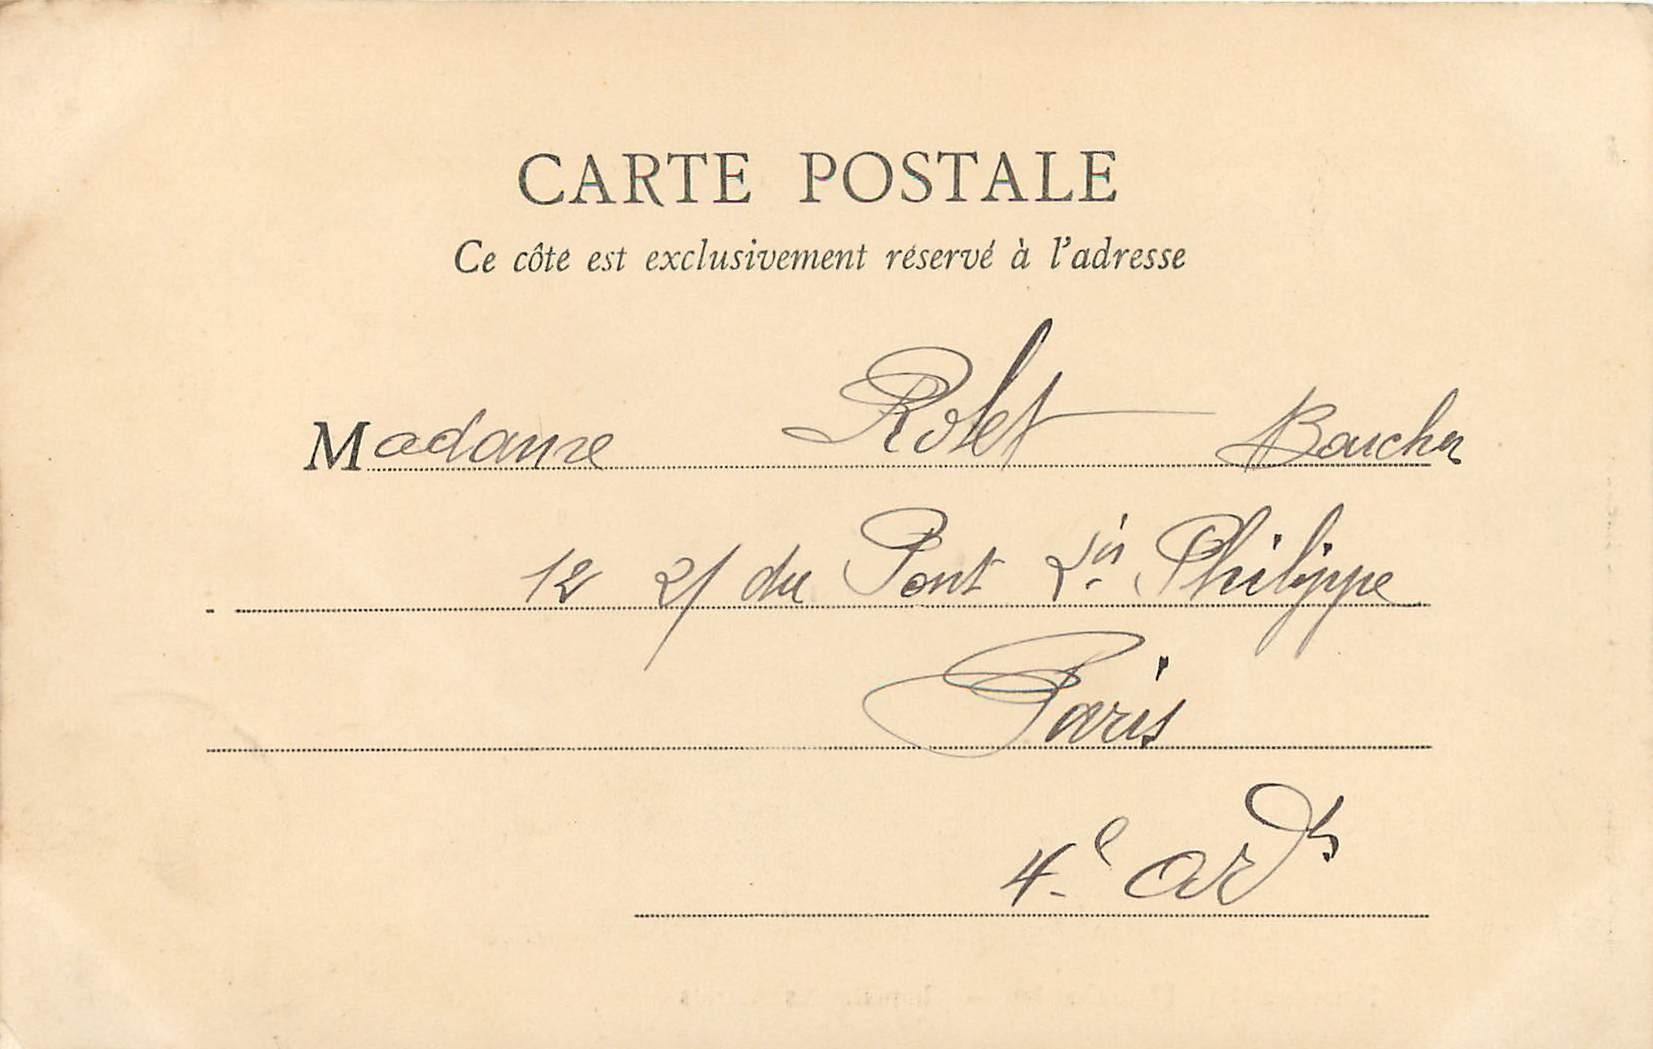 CARTE POSTALE
Ce côté est exclusivement réservé à l'adresse
Madame Rolet Boucher
12 r/ du Pont Ls Philippe
Paris
4e ardt